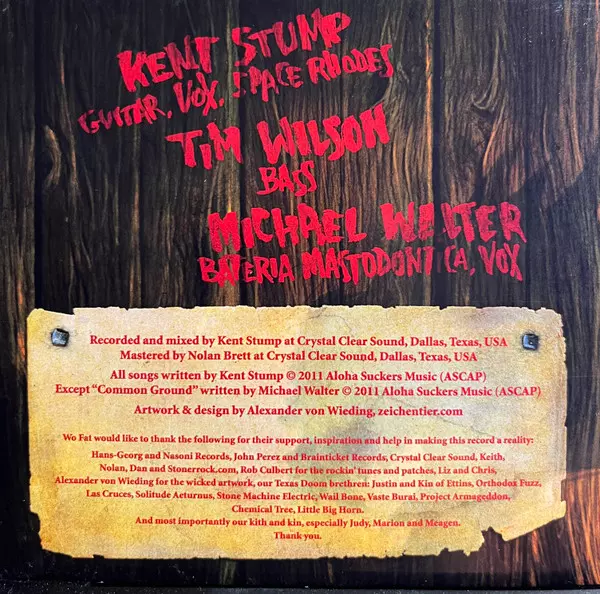 KENT STUMP
GUITAR, VOX, SPACE RHODES
TIM WILSON
BASS
MICHAEL WALTER
BATERIA MASTODONTICA, VOX
Recorded and mixed by Kent Stump at Crystal Clear Sound, Dallas, Texas, USA
Mastered by Nolan Brett at Crystal Clear Sound, Dallas, Texas, USA
All songs written by Kent Stump © 2011 Aloha Suckers Music (ASCAP)
Except “Common Ground” written by Michael Walter © 2011 Aloha Suckers Music (ASCAP)
Artwork & design by Alexander von Wieding, zeichentier.com
Wo Fat would like to thank the following for their support, inspiration and help in making this record a reality:
Hans-Georg and Nasoni Records, John Perez and Brainticket Records, Crystal Clear Sound, Keith,
Nolan, Dan and Stonerrock.com, Rob Culbert for the rockin' tunes and patches, Liz and Chris,
Alexander von Wieding for the wicked artwork, our Texas Doom brethren: Justin and Kin of Ettins, Orthodox Fuzz,
Las Cruces, Solitude Aeturnus, Stone Machine Electric, Wail Bone, Vaste Burai, Project Armageddon,
Chemical Tree, Little Big Horn.
And most importantly our kith and kin, especially Judy, Marion and Meagen.
Thank you.